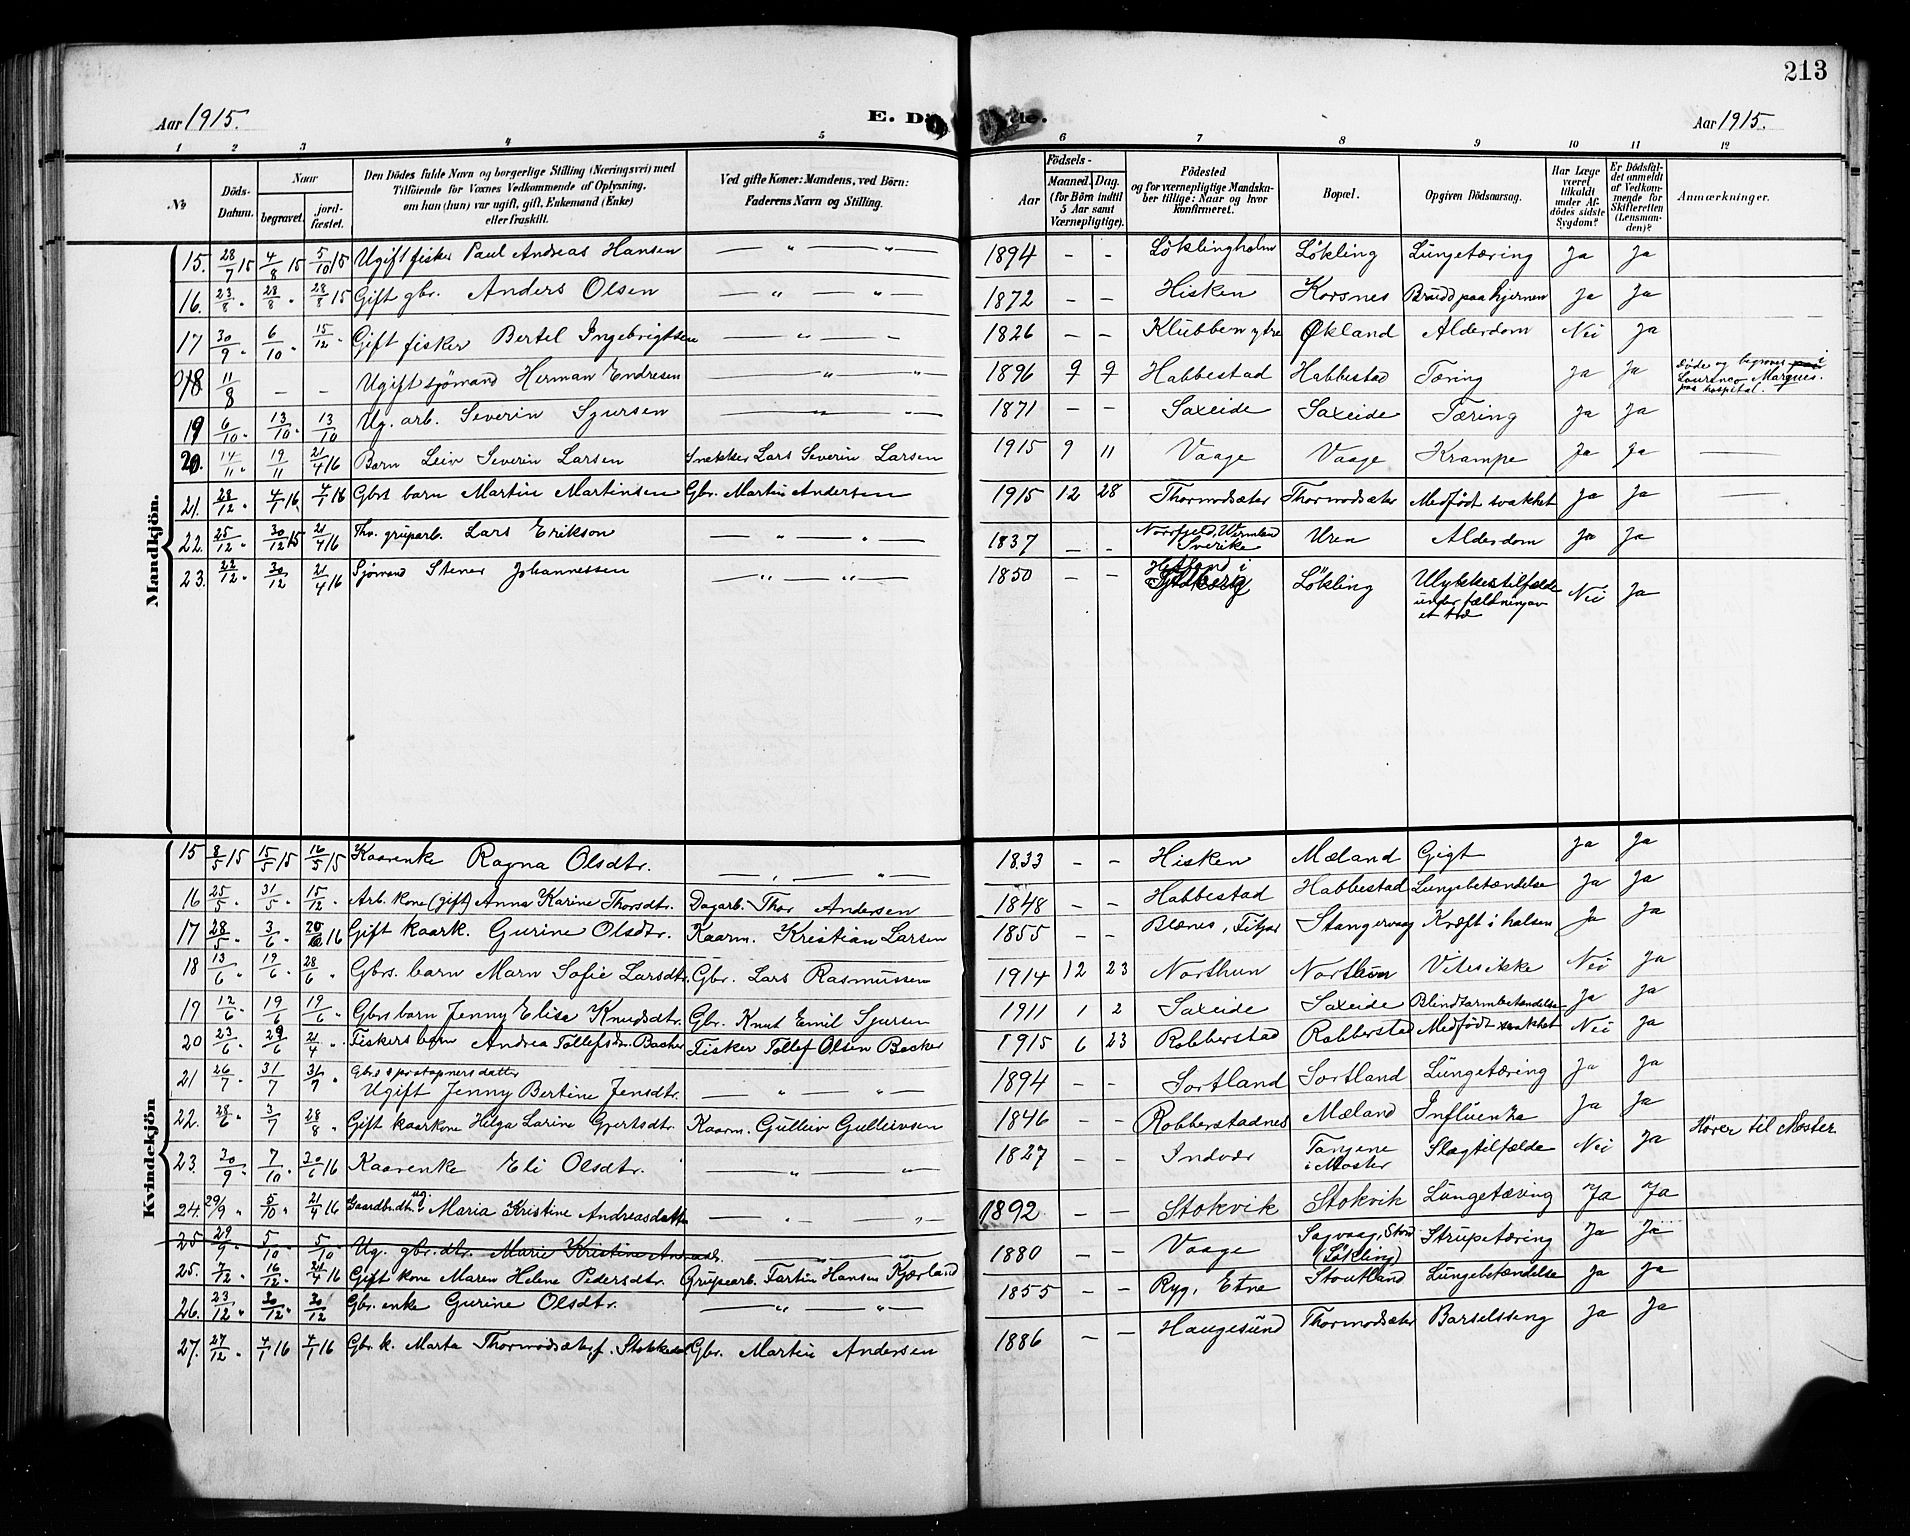 213
Aar 1915.
E. Dö
Aar 1915.
1 2 3 4 5 6 7 8 9 10 11 12
No
Döds-Datum.
Naar
begravet.
jord-fæstet.
Den Dödes fulde Navn og borgerlige Stilling (Næringsvei) med
Tilföiende for Voxnes Vedkommende af Oplysning,
om han (hun) var ugift, gift, Enkemand (Enke)
eller fraskilt.
Ved gifte Koner: Mandens, ved Börn:
Faderens Navn og Stilling.
Födsels-
Aar
Maaned. Dag.
(for Börn indtil
5 Aar samt
Værnepligtige).
Födested
og for værnepligtige Mandska-
ber tillige: Naar og hvor
Konfirmeret.
Bopæl.
Opgiven Dödsaarsag.
Har Læge
været
tilkaldt
under Af-
dödes sidste
Sygdom?
Er Dödsfal-
det anmeldt
af Vedkom-
mende for
Skifteretten
(Lensman-
den)?
Anmærkninger.
Mandkjön.
15. 28/7 15 4/8 15 5/10 15 Ugift fisker Paul Andreas Hansen — " — " — 1894 - - Löklingholm Lökling Lungetæring Ja Ja
16. 23/8 " 28/8 " 28/8 15 Gift gbr. Anders Olsen — " — " — 1872 - - Hisken Korsnes Brudd paa hjernen Ja Ja
17 30/9 " 6/10 " 15/12 " Gift fisker Bertel Ingebrigtsen — " — 1826 - - Klubben ytre Økland Alderdom Nei Ja
18 11/8 - - Ugift sjömand Herman Endresen — " — " — 1896 9 9 Habbestad Habbestad Tæring Ja Ja Døde og begraves paa i
Laurenco Marques.
paa hospital.
19 6/10 " 13/10 " 13/10 Ug. arb. Severin Sjursen — " — " — 1871 - - Saxeide Saxeide Tæring Ja Ja
20. 14/11 " 19/11 21/4 16 Barn Leiv Severin Larsen Snekker Lars Severin Larsen 1915 9 11 Vaage Vaage Krampe Ja Ja —
21. 28/12 " 4/1 16 4/1 16 Gbrs barn Martin Martinsen Gbr. Martin Andersen 1915 12 28 Thormodsæter Thormodsæter Medfödt svakhet Ja Ja —
22. 25/12 " 30/12 15 21/4 16 Fhv. gruparb. Lars Erikson — " — " — 1837 - - Norsfjeld, Vermland
Sverike Uren Alderdom Ja Ja
23. 22/12 " 30/12 21/4 16 Sjömand Stener Johannessen — " — " — 1850 - - Hetland i
Lökling Ulykkestilfælde
under fældning av
et træ Nei Ja
Kvindekjön
15 8/5 15 15/5 15 16/5 15 Kaarenke Ragna Olsdtr. — " — " — 1833 - - Hisken Mæland Gigt Ja Ja
16 25/5 " 31/5 " 15/12 " Arb. kone (gift) Anna Karine Thorsdtr. Dagarb. Thor Andersen 1848 - - Habbestad Habbestad Lungebetændelse Ja Ja
17 28/5 " 3/6 " 16 Gift kaark. Gurine Olsdtr. Kaarm. Kristian Larsen 1855 - - Blænes, Fitjar Stangervaag Kræft i halsen Ja Ja
18 13/6 " 19/6 " 28/6 " Gbrs. barn Marn Sofie Larsdtr. Gbr. Lars Rasmussen 1914 12 23 Northun Northun Vites ikke Nei Ja
19 12/6 " 19/6 " 19/6 " Gbrs barn Jenny Elise Knudsdtr. Gbr. Knut Emil Sjursen 1911 1 2 Saxeide Saxeide Blindtarmbetændelse Ja Ja
20 23/6 " 29/6 21/4 " Fiskers barn Andrea Tollefsdtr. Backer Fisker Tollef Olsen Backer 1915 6 23 Robberstad Robberstad Medfödt svakhet Nei Ja
21 26/7 " 31/7 31/7 " Gbrs datter
Ugift Jenny Bertine Jensdtr. — " — " — 1894 - - Sortland Sortland Lungetæring Ja Ja
22. 28/6 " 3/7 28/8 " Gift kaarkone Helga Larine Gjertsdtr. Kaarm. Gulleiv Gulleivsen 1846 - - Robberstadnes Mæland Influenza Ja Ja
23. 30/9 " 7/10 " 30/6 16 Kaarenke Eli Olsdtr. — " — " — 1827 - - Indvær Tangene
i Moster Slagtilfælde Nei Ja Hører til Moster
24. 29/9 " 5/10 " 21/4 16 Gaardbr.dtr. ug. Maria Kristine Andreasdatter — " — " — 1892 - - Stokvik Stokvik Lungetæring Ja Ja
25 29/9 " 5/10 " 5/10 " Ug. gbr. dtr. Marie Kristine Andreasdtr. —
25. 7/12 " 16/12 " 21/4 16 Gift kone Maren Helene Pedersdtr. Grupearb. Fartin Hansen Kjærland 1880 - - Vaage Sagvaag, Stord
(Lökling) Strupetæring Ja Ja
26. 23/12 " 30/12 " 30/12 Gbr. enke Gurine Olsdtr. — " — " — 1855 - - Ryg, Etne Stoutland Lungebetændelse Ja Ja
27. 27/12 " 4/1 16 4/1 16 Gbr. k. Marta Thormodsæter f. Stokkedal Gbr. Martin Andersen 1886 - - Haugesund Thormodsæter Barselseng Ja Ja